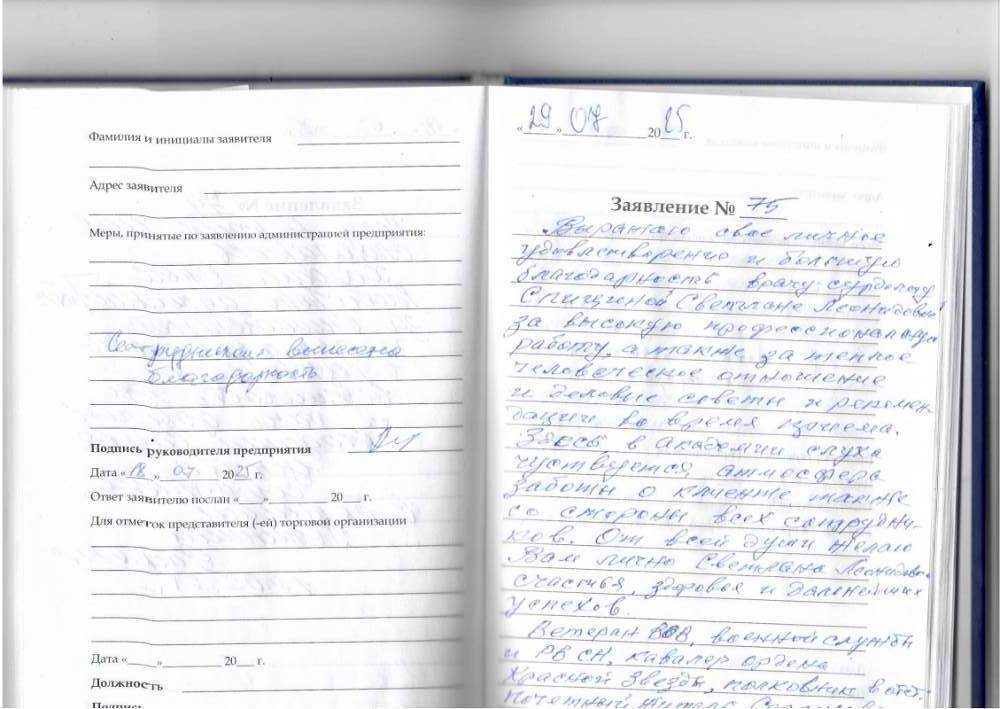 Фамилия и инициалы заявителя
Адрес заявителя
Меры, принятые по заявлению администрацией предприятия:
Сотруднику вынесена
благодарность
Подпись руководителя предприятия
Дата «18» 07 2025 г.
Ответ заявителю послан «___»________ 20___ г.
Для отметок представителя (-ей) торговой организации
Дата «___»________ 20___ г.
Должность
Подпись
«29» 07 2025 г.
Заявление № 75
Выражаю свое личное
удовлетворение и большую
благодарность врачу-сурдологу
Спициной Светлане Леонидовне
за высокую профессиональную
работу, а также за теплое
человеческое отношение
и деловые советы и рекомен-
дации во время приема.
Здесь в академии слуха
чуствуется атмосфера
заботы о клиенте также
со стороны всех сотрудни-
ков. От всей души желаю
Вам лично Светлана Леонидовна
счастья, здоровья и дальнейших
успехов.
Ветеран ВОВ, военной службы
и РВСН, кавалер ордена
Красной Звезды, полковник в отст.
почетный житель